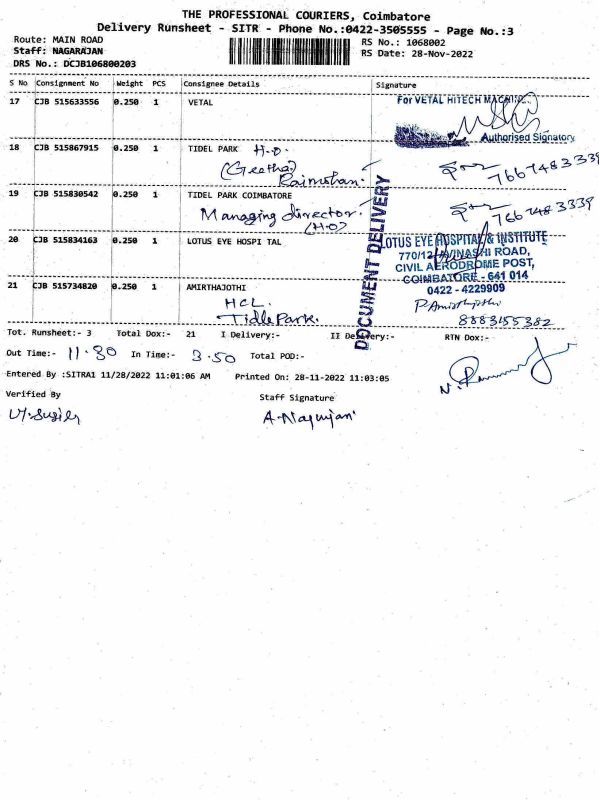 THE PROFESSIONAL COURIERS, Coimbatore
Delivery Runsheet - SITR - Phone No.:0422-3505555 - Page No.:3
Route: MAIN ROAD
Staff: NAGARAJAN
DRS No.: DCJB106800203
RS No.: 1068002
RS Date: 28-Nov-2022
S No Consignment No Weight PCS Consignee Details Signature
17 CJB 515633556 0.250 1 VETAL
For VETAL HITECH MACHINE
Authorised Signatory
18 CJB 515867915 0.250 1 TIDEL PARK H.O.
(Geetha)
7667483339
19 CJB 515830542 0.250 1 TIDEL PARK COIMBATORE
Managing director.
(H.O)
7667483339
20 CJB 515834163 0.250 1 LOTUS EYE HOSPI TAL
LOTUS EYE HOSPITAL & INSTITUTE
770/12, AVINASHI ROAD,
CIVIL AERODROME POST,
COIMBATORE - 641 014
0422 - 4229909
DOCUMENT DELIVERY
21 CJB 515734820 0.250 1 AMIRTHAJOTHI
HCL.
Tidle Park.
8883155382
Tot. Runsheet:- 3 Total Dox:- 21 I Delivery:- II Delivery:- RTN Dox:-
Out Time:- 11.30 In Time:- 3.50 Total POD:-
Entered By :SITRA1 11/28/2022 11:01:06 AM Printed On: 28-11-2022 11:03:05
Verified By Staff Signature